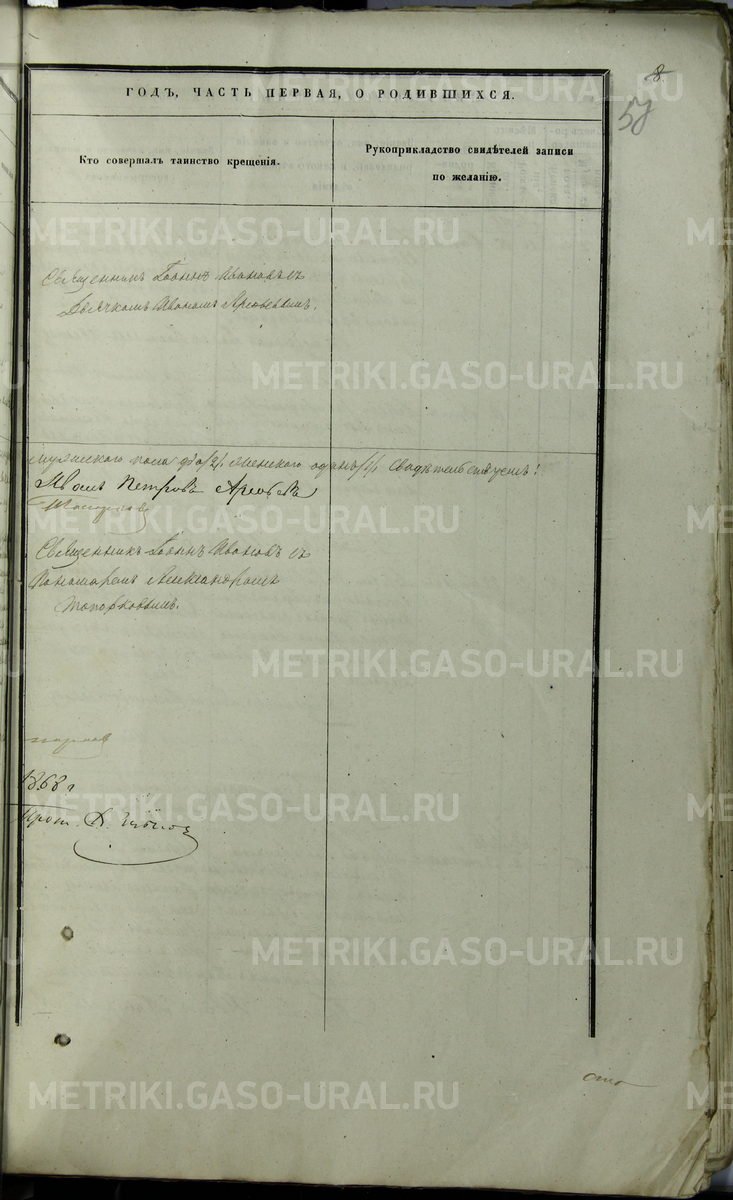 8
57
ГОДЪ, ЧАСТЬ ПЕРВАЯ, О РОДИВШИХСЯ.
Кто совершалъ таинство крещенія.
Рукоприкладство свидѣтелей записи
по желанію.
Священникъ Іоаннъ Ивановъ съ
Дьячкомъ Иваномъ Арефьевымъ.
мужескаго пола два /2/, женскаго одинъ /1/ Свидѣтельствуемъ:
Иванъ Петровъ Арефьевъ
Священникъ Іоаннъ Ивановъ съ
Пономаремъ Александромъ
Топорковымъ.
1868 г
Прот.
METRIKI.GASO-URAL.RU